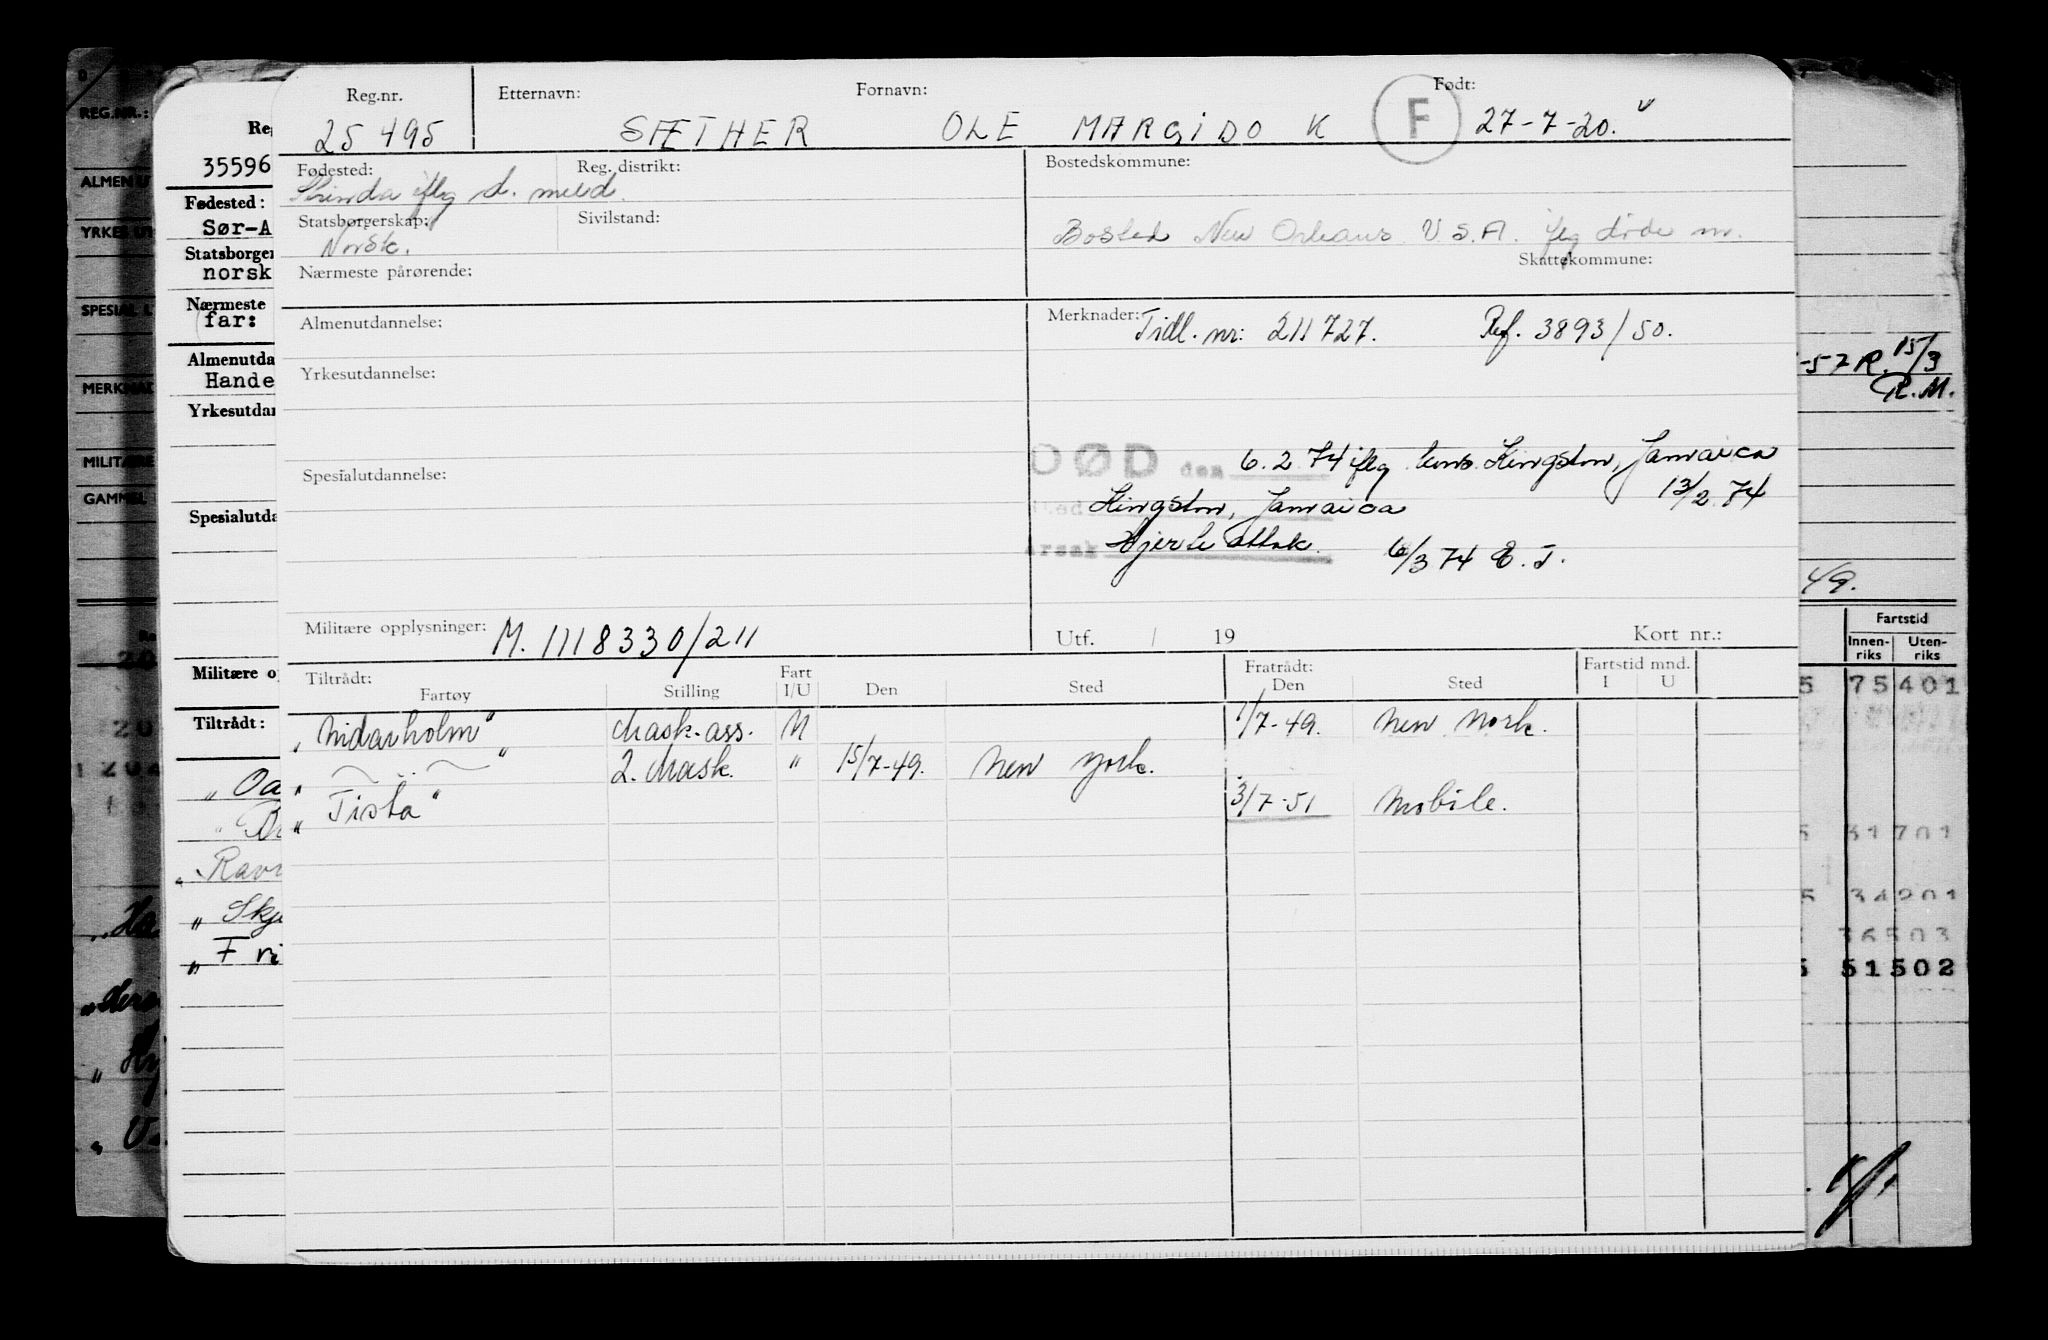 Reg.nr. Etternavn: Fornavn: Født:
25495 SÆTHER OLE MARGIDO K F 27-7-20.
Fødested: Reg. distrikt: Bostedskommune:
Strinda iflg d. meld.
Statsborgerskap: Sivilstand:
Norsk. Bosted New Orleans U.S.A. iflg døds m.
Nærmeste pårørende: Skattekommune:
Almenutdannelse: Merknader: Tidl. nr: 211727. Ref. 3893/50.
Yrkesutdannelse:
DØD den 6.2.74 iflg kons. Kingston, Jamaica
13/2.74
Spesialutdannelse:
sted Kingston, Jamaica
årsak Hjerte attak. 6/3 74 E.T.
Militære opplysninger: M. 1118330/211 Utf. / 19 Kort nr.:
Tiltrådt: Fart Fratrådt: Fartstid mnd.
Fartøy Stilling I/U Den Sted Den Sted I U
"Nidarholm" Mask-ass. U 1/7-49. New York.
" — " — " 2. Mask. " 15/7-49. New York.
" Tista " 3/7-51 Mobile.
Re
35596
Fødested:
Sør-A
Statsborger
norsk
Nærmeste
far:
Almenutda
Hande
Yrkesutdan
Spesialutda
Militære o
Tiltrådt:
" Oa
"
" Ravn
" Skje
" Fri
REG.NR.:
ALMENU
YRKESUT
SPESIAL
MERKNAD
MILITÆRE
GAMMEL
-57 R. 15/3
R.M.
49.
Fartstid
Innen-riks Uten-riks
5 75401
5 31701
5 34201
36503
5 51502